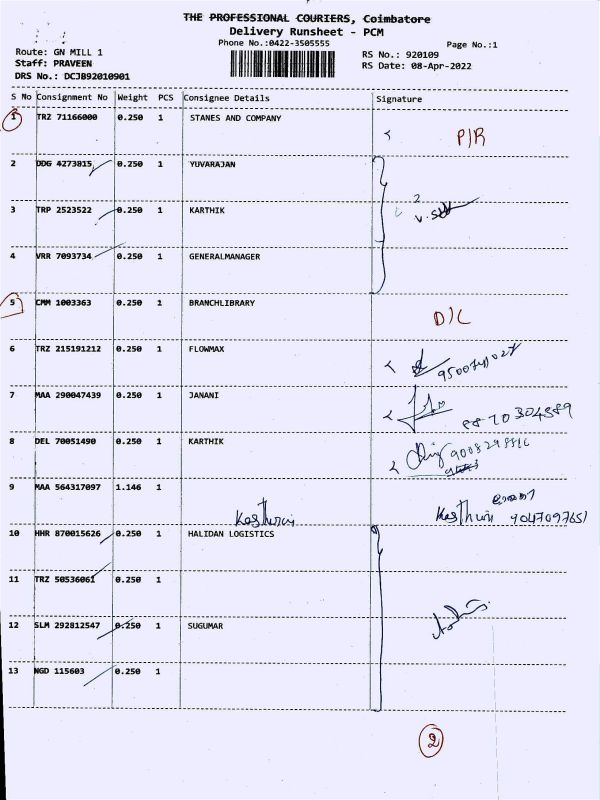 THE PROFESSIONAL COURIERS, Coimbatore
Delivery Runsheet - PCM
Phone No.:0422-3505555
Page No.:1
Route: GN MILL 1
RS No.: 920109
Staff: PRAVEEN
RS Date: 08-Apr-2022
DRS No.: DCJB92010901
S No Consignment No Weight PCS Consignee Details Signature
1 TRZ 71166000 0.250 1 STANES AND COMPANY
P/R
2 DDG 4273815 0.250 1 YUVARAJAN
3 TRP 2523522 0.250 1 KARTHIK
4 VRR 7093734 0.250 1 GENERALMANAGER
5 CMM 1003363 0.250 1 BRANCHLIBRARY
D/C
6 TRZ 215191212 0.250 1 FLOWMAX
7 MAA 290047439 0.250 1 JANANI
8870304889
8 DEL 70051490 0.250 1 KARTHIK
9 MAA 564317097 1.146 1
Kasthuri 9047097651
10 HHR 870015626 0.250 1 HALIDAN LOGISTICS
11 TRZ 50536061 0.250 1
12 SLM 292812547 0.250 1 SUGUMAR
13 NGD 115603 0.250 1
2